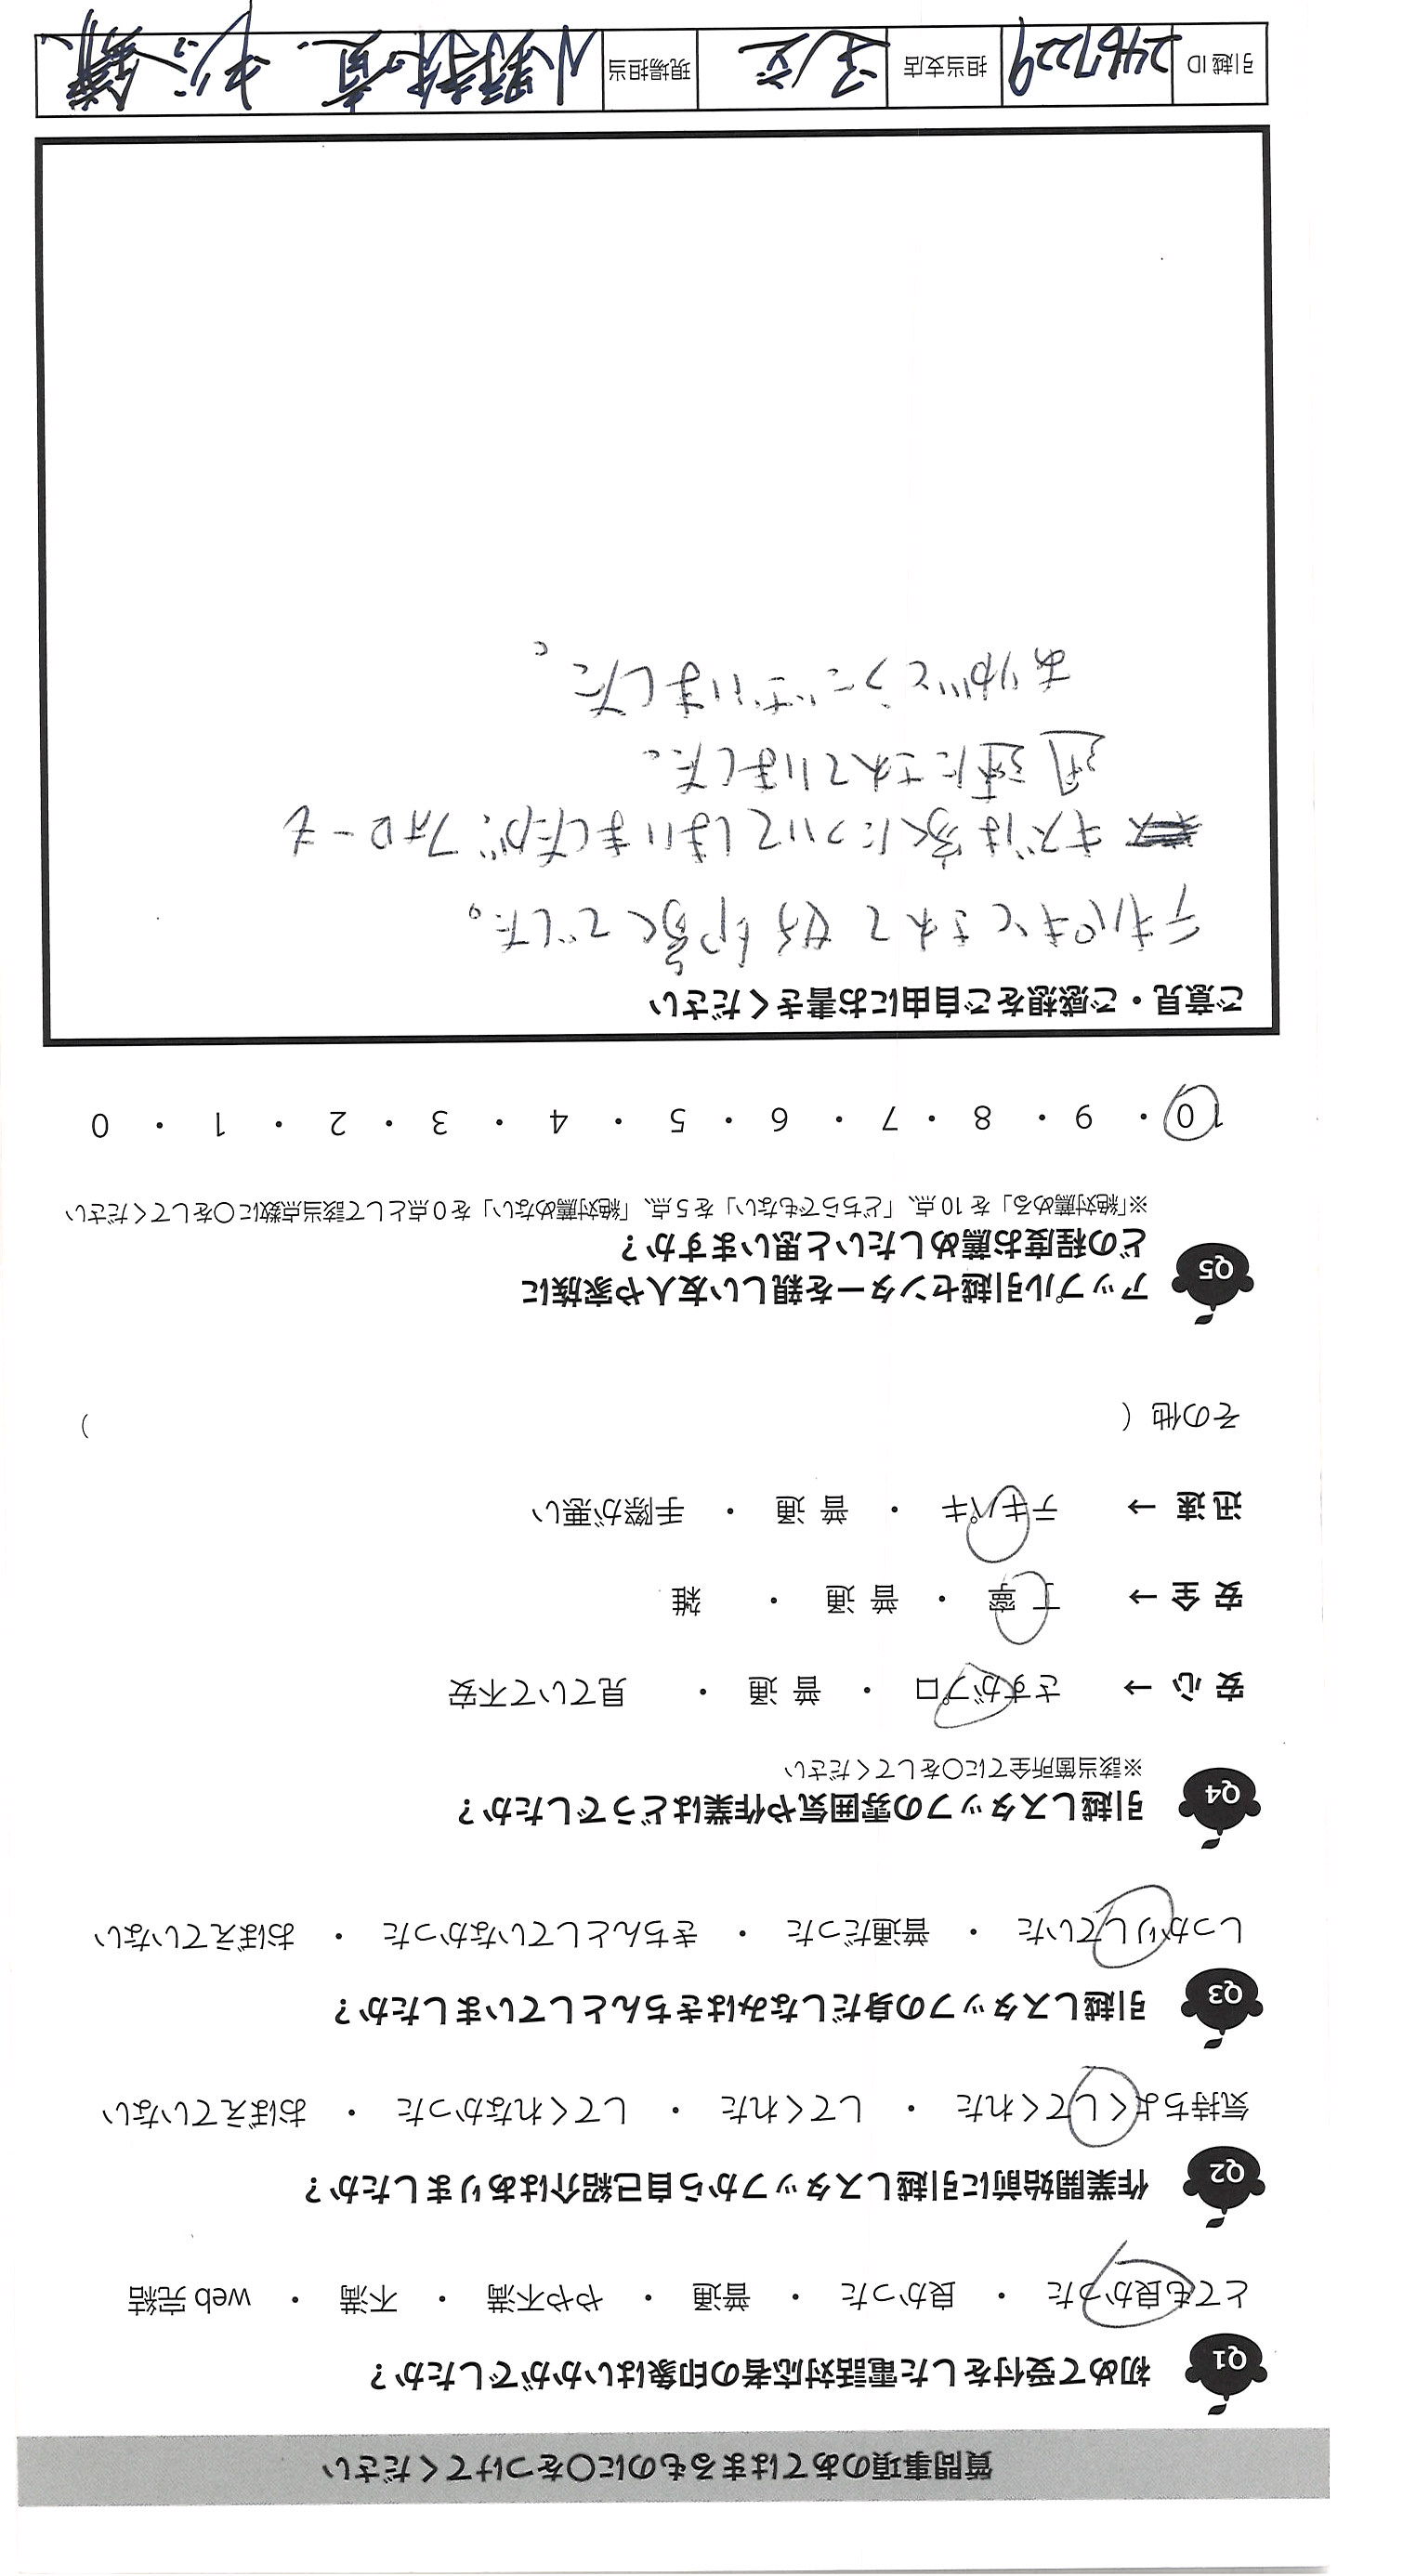 質問事項のあてはまるものに○をつけてください
Q1 初めて受付をした電話対応者の印象はいかがでしたか？
とても良かった ・ 良かった ・ 普通 ・ やや不満 ・ 不満 ・ web 完結
Q2 作業開始前に引越しスタッフから自己紹介はありましたか？
気持ちよくしてくれた ・ してくれた ・ してくれなかった ・ おぼえていない
Q3 引越しスタッフの身だしなみはきちんとしていましたか？
しっかりしていた ・ 普通だった ・ きちんとしていなかった ・ おぼえていない
Q4 引越しスタッフの雰囲気や作業はどうでしたか？
※該当箇所全てに○をしてください
安 心 → さすがプロ ・ 普 通 ・ 見ていて不安
安 全 → 丁 寧 ・ 普 通 ・ 雑
迅 速 → テキパキ ・ 普 通 ・ 手際が悪い
その他（ ）
Q5 アップル引越センターを親しい友人や家族に
どの程度お薦めしたいと思いますか？
※「絶対薦める」を 10 点、「どちらでもない」を 5 点、「絶対薦めない」を 0 点として該当点数に○をしてください
10 ・ 9 ・ 8 ・ 7 ・ 6 ・ 5 ・ 4 ・ 3 ・ 2 ・ 1 ・ 0
ご意見・ご感想をご自由にお書きください
テキパキとされて好印象でした。
キズは家についてしまいましたが、フォローも
迅速にされていました。
ありがとうございました。
引越 ID 2467229 担当支店 現場担当 小野